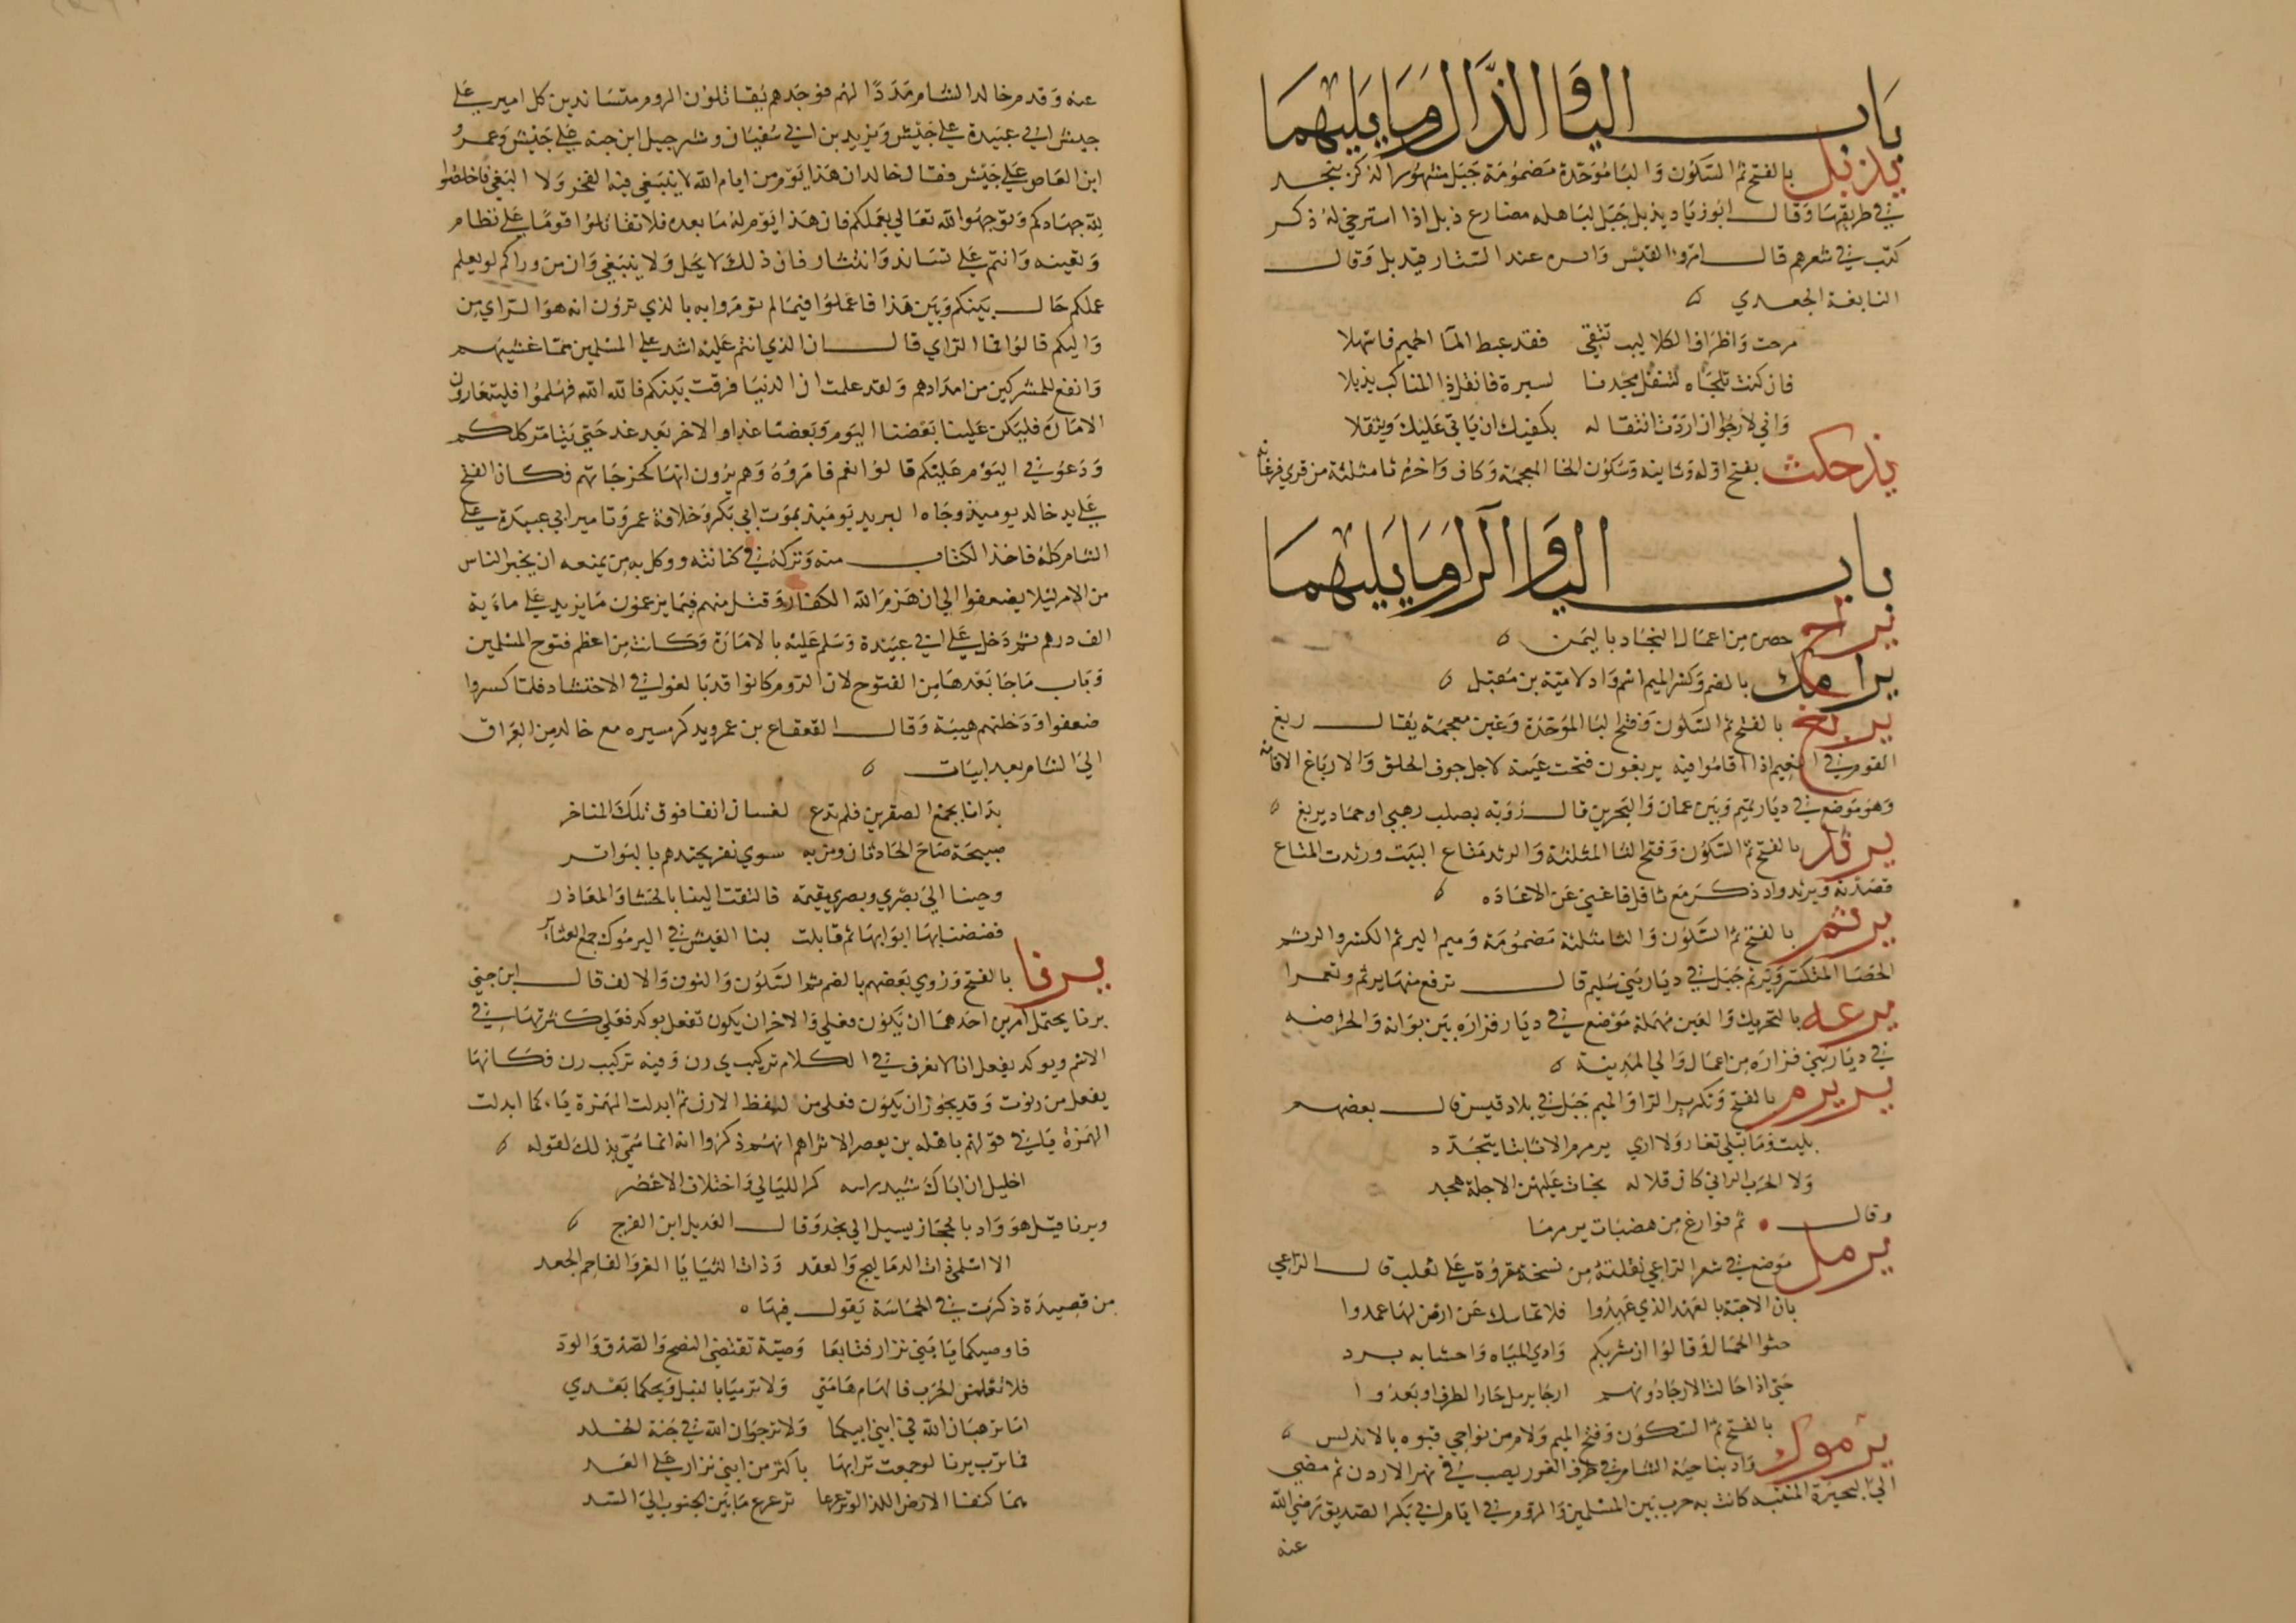 باب الياء والذال وما يليهما
يذبل بالفتح ثم السكون والبا موحدة مضمومة جبل مشهور الذكر بنجد
في طريقها وقال ابو زياد يذبل جبل لباهله مضارع ذبل اذا استرخي له ذكر
كثير في شعرهم قال امرؤ القيس وايسره عند الستار فيذبل وقال
النابغة الجعدي
مرحت واطراف الكلاليب تتقي فقد عبط الما الحميم فاسهلا
فان كنت تلحاه لتنقل مجدنا لسبرة فانقل ذا المناكب يذبلا
واني لارجو ان اردت انتقاله بكفيك ان ياتي عليك ويثقلا
يذحكث بفتح اوله وثانيه وسكون الخا المعجمة وكاف واخره ثا مثلثة من قري فرغانه
باب الياء والرا وما يليهما
يراخ حصن من اعمال النجاد باليمن
يرامك بالضم وكسر الميم اسم واد لامية بن مقبل
يربغ بالفتح ثم السكون وفتح البا الموحدة وغين معجمة يقال ربغ
القوم في النعيم اذا اقاموا فيه يربغون فتحت عينه لاجل حرف الحلق والارباغ الاقامه
وهو موضع في ديار تميم وبين عمان والبحرين قال رؤبة بصلب رهبي او جماد يربغ
يرثد بالفتح ثم السكون وفتح الثا المثلثة والرثد متاع البيت ورثدت المتاع
نضدته ويرثد واد ذكر مع ثافل فاغني عن الاعاده
يرثم بالفتح ثم السكون والثا مثلثة مضمومة وميم اليرثم الكسر والرثم
الحصا المتكسر ويرثم جبل في ديار بني سليم قال ترفع منها يرثم وتعمرا
يرعه بالتحريك والعين مهملة موضع في ديار فزاره بين بوانه والحراضه
في ديار بني فزاره من اعمال والي المدينة
يرمرم بالفتح وتكرير الرا والميم جبل في بلاد قيس قال بعضهم
بليت وما تبلي تعار ولا اري يرمرم الا ثابتا يتجدد
ولا الخرب الداني كان قلاله بخات عليهن الاجلة هجد
وقال ثم فوارغ من هضبات يرمرما
يرمل موضع في شعر الراعي نقلته من نسخة مقروة علي ثعلب قال الراعي
بان الاحبة بالعهد الذي عهدوا فلا تماسك عن ارض لها عمدوا
حثوا الجمال وقالوا ان شربكم وادي المياه واحسا به برد
حتي اذا حالت الارحا دونهم ارحا يرمل حار الطرف او بعدوا
بالفتح ثم السكون وفتح الميم ولام من نواحي قبره بالاندلس
يرموك واد بناحية الشام في طرف الغور يصب في نهر الاردن ثم مضي
الي البحيرة المنتنه كانت به حرب بين المسلمين والروم في ايام ابي بكر الصديق رضي الله
عنه
عنه وقدم خالد الشام مددا لهم فوجدهم يقاتلون الروم متساندين كل امير علي
جيش ابي عبيدة علي جيش ويزيد بن ابي سفيان وشرحبيل ابن حسنه علي جيش وعمرو
ابن العاص علي جيش فقال خالد ان هذا يوم من ايام الله لا ينبغي فيه الفخر ولا البغي فاخلصوا
لله جهادكم وتوجهوا لله تعالي بعملكم فان هذا يوم له ما بعده فلا تقاتلوا قوما علي نظام
وتعبيه وانتم علي تساند وانتشار فان ذلك لا يحل ولا ينبغي وان من وراكم لو يعلم
عملكم حال بينكم وبين هذا فاعملوا فيما لم تومروا به بالذي ترون انه هو الراي من
واليكم قالوا فما الراي قال ان الذي انتم عليه اشد علي المسلمين مما غشيهم
وانفع للمشركين من امدادهم ولقد علمت ان الدنيا فرقت بينكم فالله الله فهلموا فليتعاورون
الاماره فليكن علينا بعضنا اليوم وبعضنا غدا والاخر بعد غد حتي يتامر كلكم
ودعوني اليوم عليكم قالوا نعم فامروه وهم يرون انها كخرجاتهم فكان الفتح
علي يد خالد يوميذ وجاه البريد يوميذ بموت ابي بكر وخلافة عمر وتامير ابي عبيدة علي
الشام كله فاخذ الكتاب منه وتركه في كنانته ووكل به من يمنعه ان يخبر الناس
من الامر ليلا يضعفوا الي ان هزم الله الكفار وقتل منهم فيما يزعمون ما يزيد علي ماية
الف درهم ثم دخل علي ابي عبيدة وسلم عليه بالامارة وكانت من اعظم فتوح المسلمين
وباب ما جا بعدها من الفتوح لان الروم كانوا قد بالغوا في الاحتشاد فلما كسروا
ضعفوا ودخلتهم هيبة وقال القعقاع بن عمرو يذكر مسيره مع خالد من العراق
الي الشام بعد ابيات
بدانا بجمع الصفرين فلم ندع لغسان انفا فوق تلك المناخر
صبيحة صاح الحادثان ومن به سوي نفر نجتذهم بالبواتر
وجينا الي بصري وبصري مقيمه فالقت الينا بالحشا والمعاذر
فضضنا بها ابوابها ثم قابلت بنا العيش في اليرموك جمع العشاير
يرنا بالفتح وروي بعضهم بالضم ثم السكون والنون والالف قال ابن جني
يرنا يحتمل امرين احدهما ان يكون فعلي والاخر ان يكون تفعل يوكد فعلي كثرتها في
الاسم ويوكد يفعل انا لا نعرف في الكلام تركيب ي رن وفيه تركيب رن فكانها
يفعل من رنوت وقد يجوز ان يكون فعلي من لفظ الارن ثم ابدلت الهمزة ياء كما ابدلت
الهمزة يا في قولهم باهله بن يعصر الا تراهم انهم ذكروا انه انما سمي بذلك لقوله
اخليل ان اباك شيب راسه كر الليالي واختلاف الاعصر
ويرنا قيل هو واد بالحجاز يسيل الي نجد وقال العديل ابن الفرج
الا اسلمي ذات الدماليج والعقد وذات الثنايا الغر والفاحم الجعد
من قصيدة ذكرت في الحماسة يقول فيها
فاوصيكما يا بني نزار فتابعا وصية تقتضي النصح والصدق والود
فلا تعلمن الحرب فالهام هامتي ولا ترميا بالنبل ويحكما بعدي
اما ترهبان الله في ابني ابيكما ولا ترجوان الله في جنة الخلد
فما ترب يرنا لو جمعت ترابها باكثر من ابني نزار علي العد
هما كنفا الارض اللذا لو تزعزعا تزعزع ما بين الجنوب الي السد